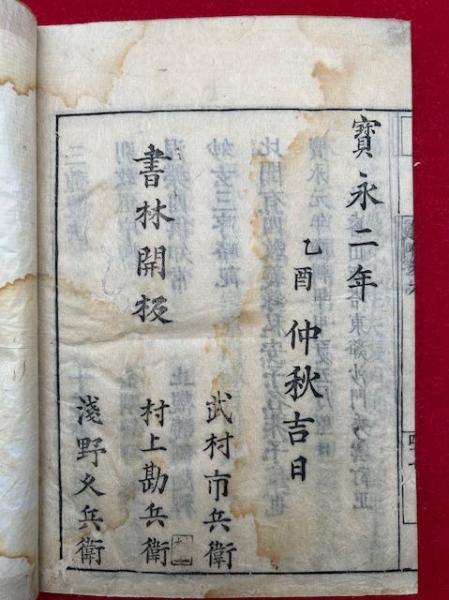 寶永二年
乙酉 仲秋吉日
武村市兵衛
書林開板 村上勘兵衛
淺野久兵衛